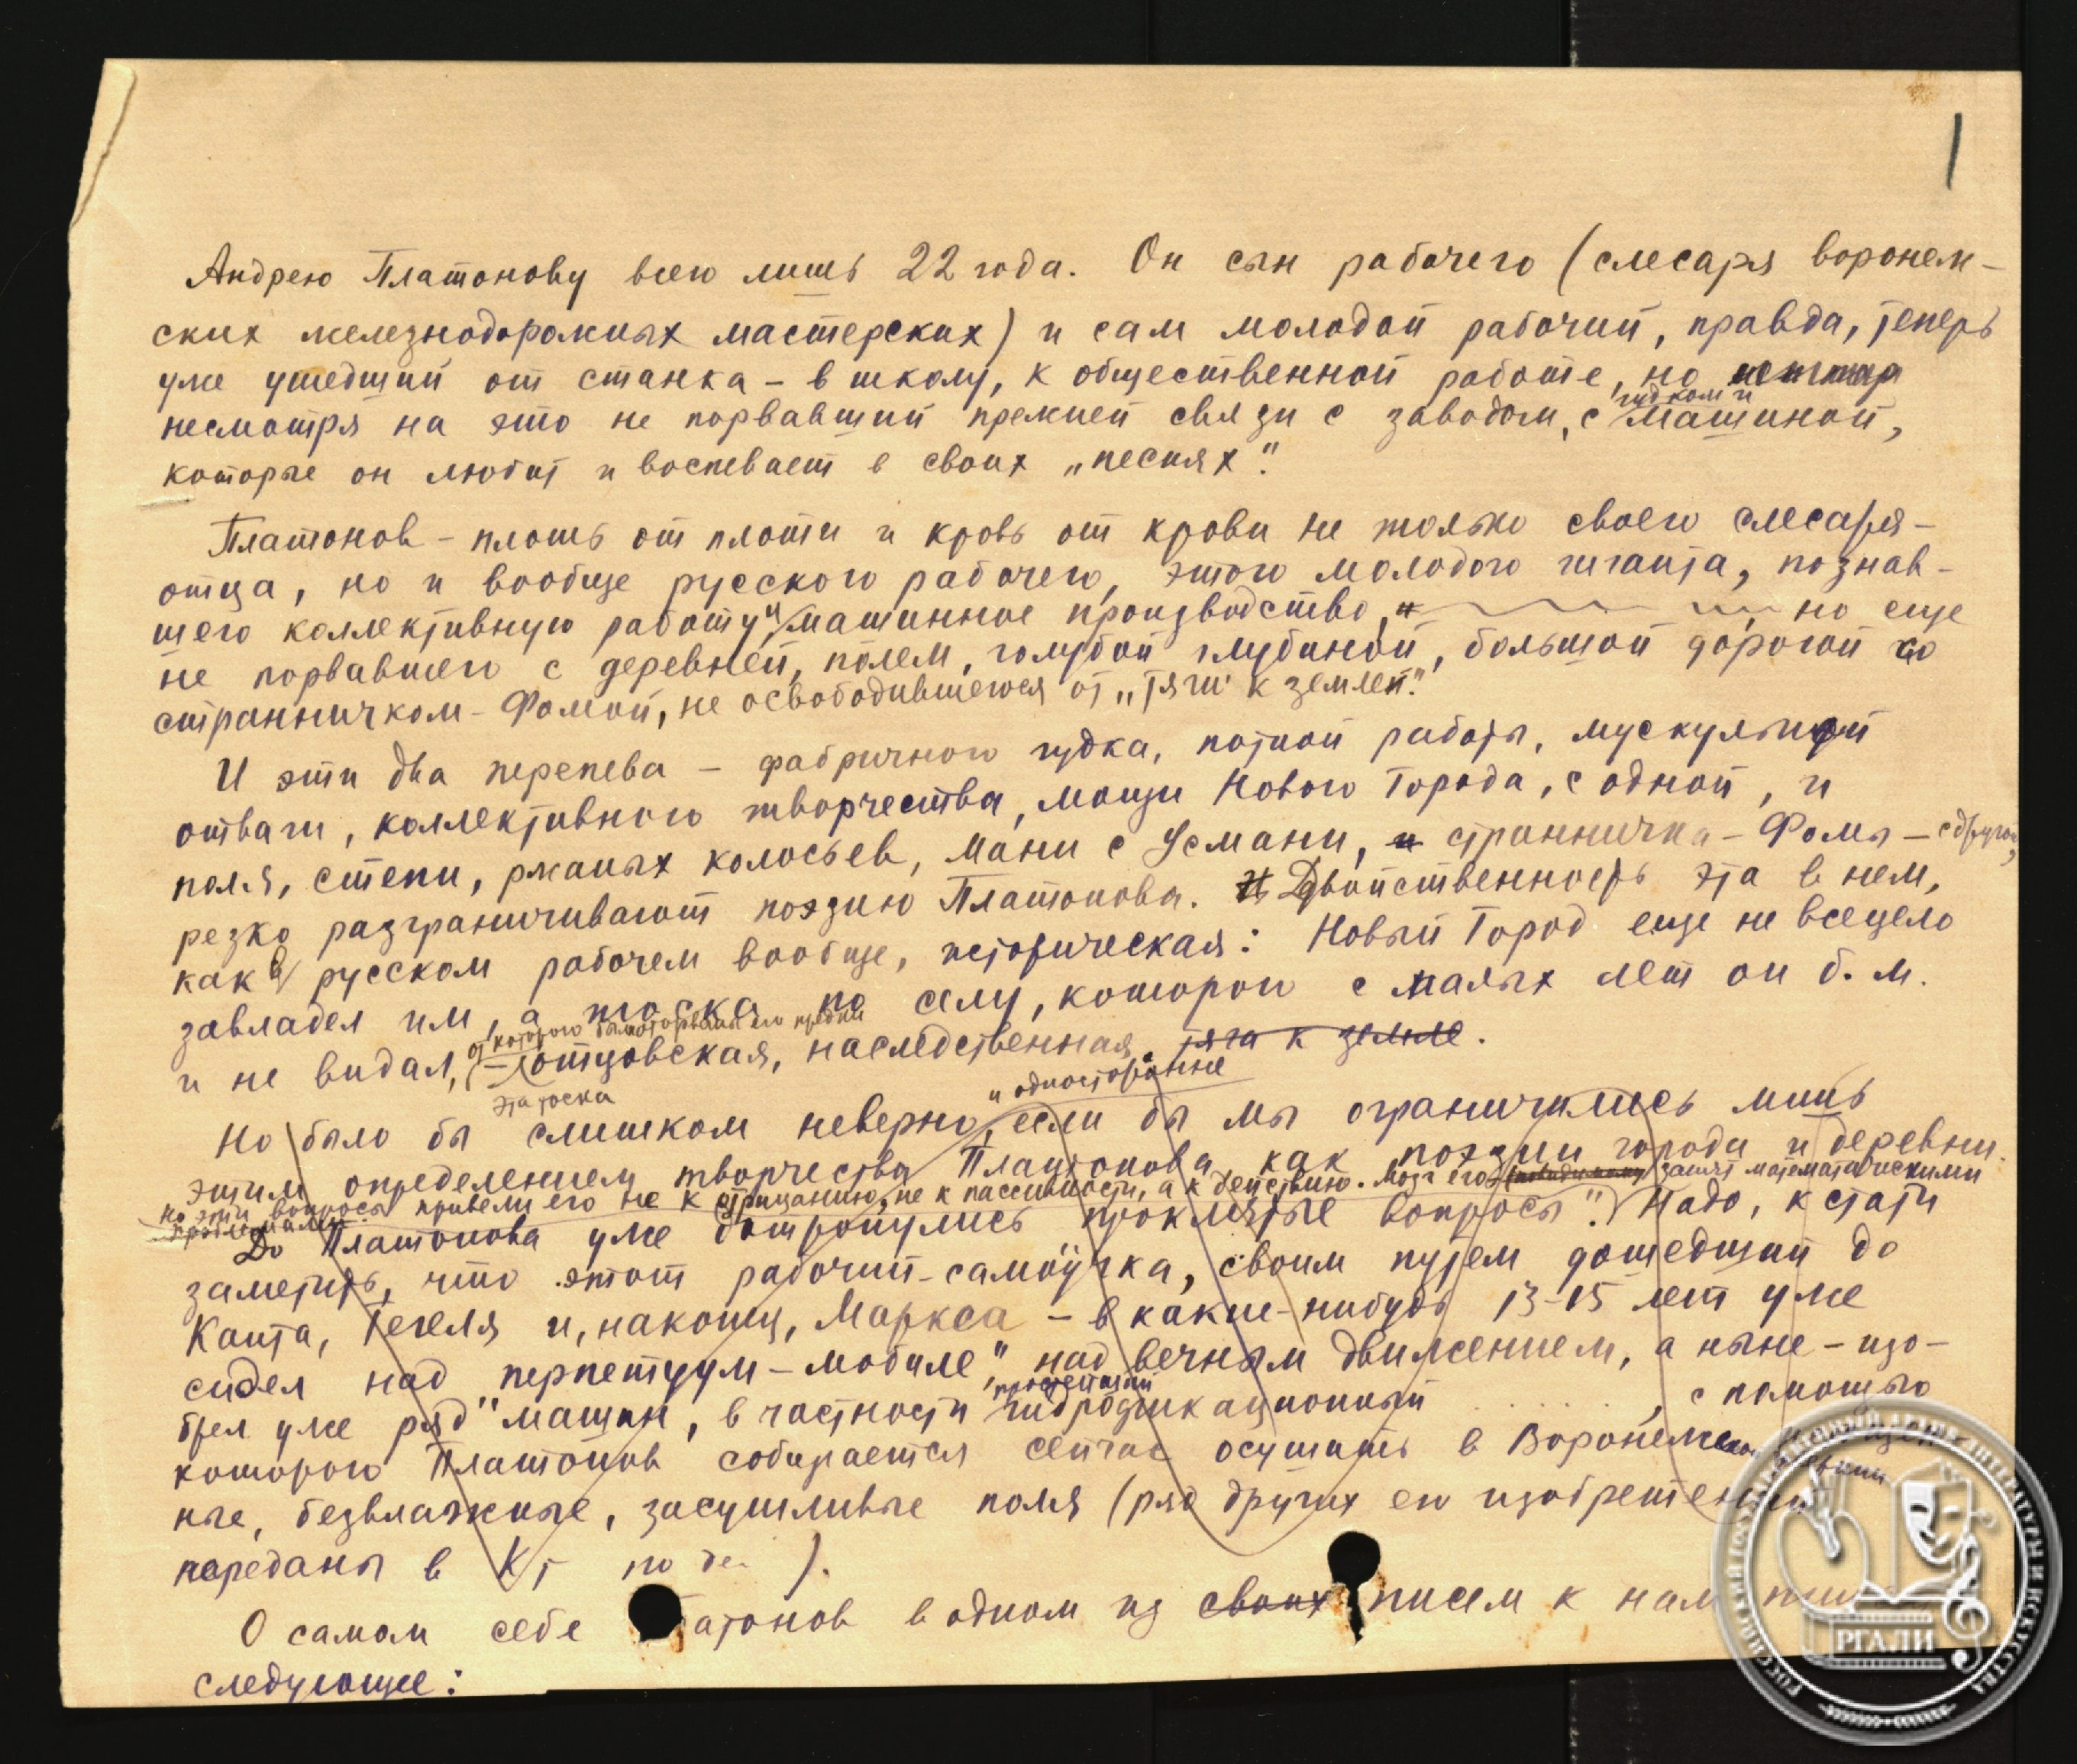 1
Андрею Платонову всего лишь 22 года. Он сын рабочего (слесаря воронеж-
ских железнодорожных мастерских) и сам молодой рабочий, правда, теперь
уже ушедший от станка – в школу, к общественной работе, но
гудком и
несмотря на это не порвавший прежней связи с заводом, с машиной,
которые он любит и воспевает в своих „песнях".
Платонов – плоть от плоти и кровь от крови не только своего слесаря-
отца, но и вообще русского рабочего, этого молодого гиганта, познав-
шего коллективную работу и машинное производство, но еще
не порвавшего с деревней, полем, голубой глубиной, большой дорогой со
странничком-Фомой, не освободившегося от „тяги к земле".
И эти два перепева – фабричного гудка, потной работы, мускульной
отваги, коллективного творчества, мощи Нового Города, с одной, и
поля, степи, ржаных колосьев, Мани с Усмани, и странничка – Фомы – с другой,
резко разграничивают поэзию Платонова. Двойственность эта в нем,
как в русском рабочем вообще, историческая: Новый Город еще не всецело
завладел им, а тоска по селу, которого с малых лет он б. м.
от которого были оторваны его предки
и не видал, – отцовская, наследственная тяга к земле.
эта тоска
и односторонне
Но было бы слишком неверно, если бы мы ограничились лишь
этим определением творчества Платонова как поэзии города и деревни.
но эти вопросы привели его не к отрицанию, не к пассивности, а к действию. Мозг его занят математическими
проблемами
До Платонова уже дотронулись „проклятые вопросы". Надо, кстати
заметить, что этот рабочий-самоучка, своим путем дошедший до
Канта, Гегеля и, наконец, Маркса – в какие-нибудь 13–15 лет уже
сидел над „перпетуум-мобиле", над вечным движением, а ныне – изо-
брел уже ряд машин, в частности гидрофикационный . . . . . , с помощью
которого Платонов собирается сейчас осушить в Воронежской
ные, безвлажные, засушливые поля (ряд других его изобретений
переданы в К ).
О самом себе Платонов в одном из своих писем к нам
следующее:
РОССИЙСКИЙ ГОСУДАРСТВЕННЫЙ АРХИВ ЛИТЕРАТУРЫ И ИСКУССТВА
РГАЛИ